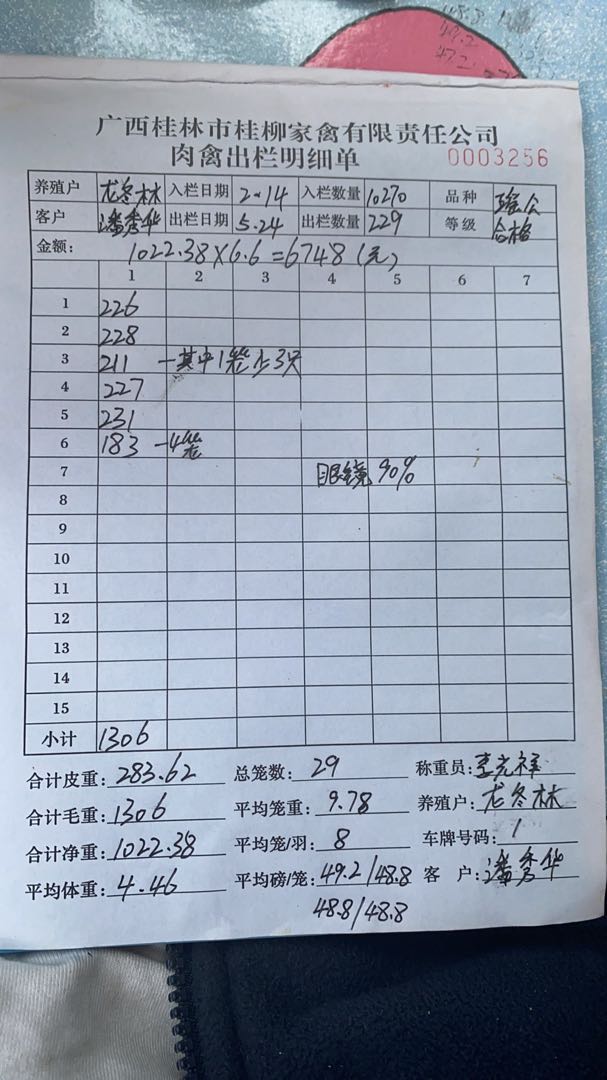 48.3
49.2
47.2
广西桂林市桂柳家禽有限责任公司
肉禽出栏明细单 0003256
养殖户 龙冬林 入栏日期 2-14 入栏数量 10270 品种 瑶公
客户 潘秀华 出栏日期 5.24 出栏数量 229 等级 合格
金额: 1022.38×6.6=6748(元)
1 2 3 4 5 6 7
1 226
2 228
3 211 -其中1笼少3只
4 227
5 231
6 183 -4笼
7 眼镜90%
8
9
10
11
12
13
14
15
小计 1306
合计皮重: 283.62 总笼数: 29 称重员: 李光祥
合计毛重: 1306 平均笼重: 9.78 养殖户: 龙冬林
合计净重: 1022.38 平均笼/羽: 8 车牌号码: 1
平均体重: 4.46 平均磅/笼: 49.2/48.8 客户: 潘秀华
48.8/48.8